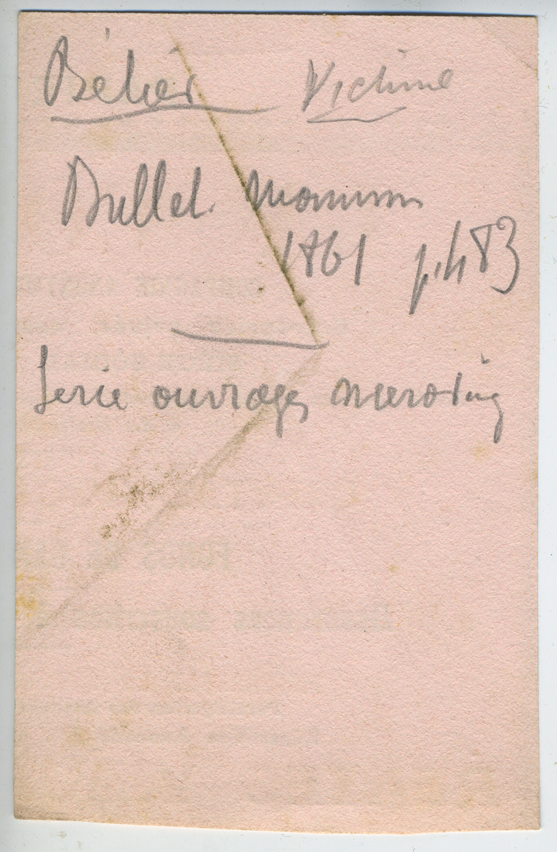 Bélier Victime
Bullet. Monum
1861 p.483
Serie ouvrages meroving